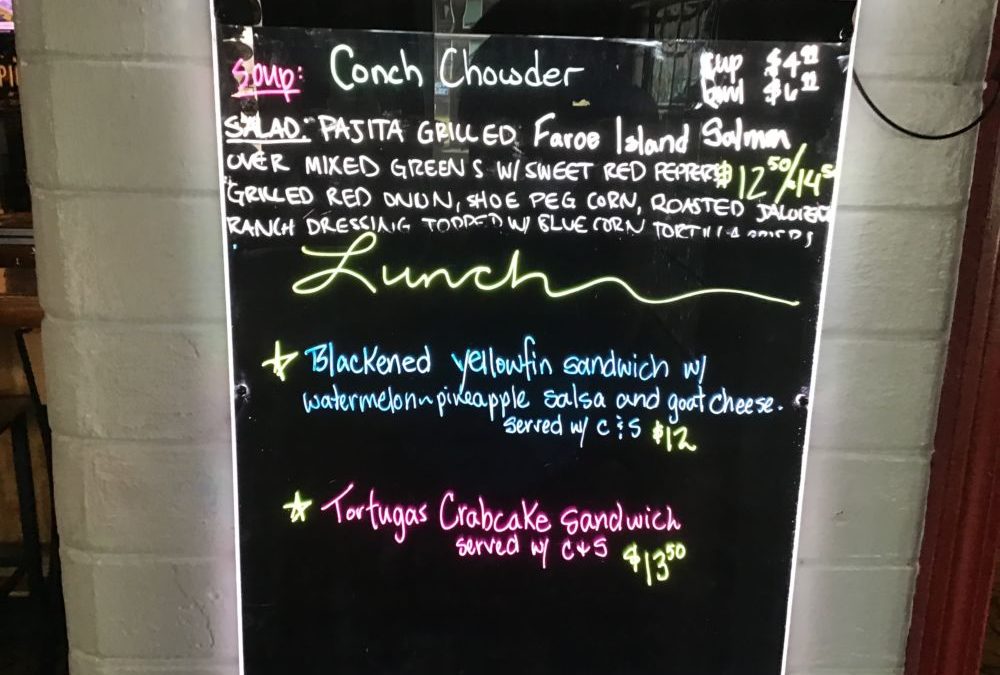 Soup: Conch Chowder cup $4.99
bowl $6.99
SALAD: FAJITA GRILLED Faroe Island Salmon
OVER MIXED GREENS W/ SWEET RED PEPPERS $12.50/14.50
GRILLED RED ONION, SHOE PEG CORN, ROASTED JALAPENO
RANCH DRESSING TOPPED W/ BLUE CORN TORTILLA
Lunch
Blackened yellowfin sandwich w/
watermelon~pineapple salsa and goat cheese.
served w/ C & S $12
Tortugas Crabcake sandwich
served w/ C & S $13.50